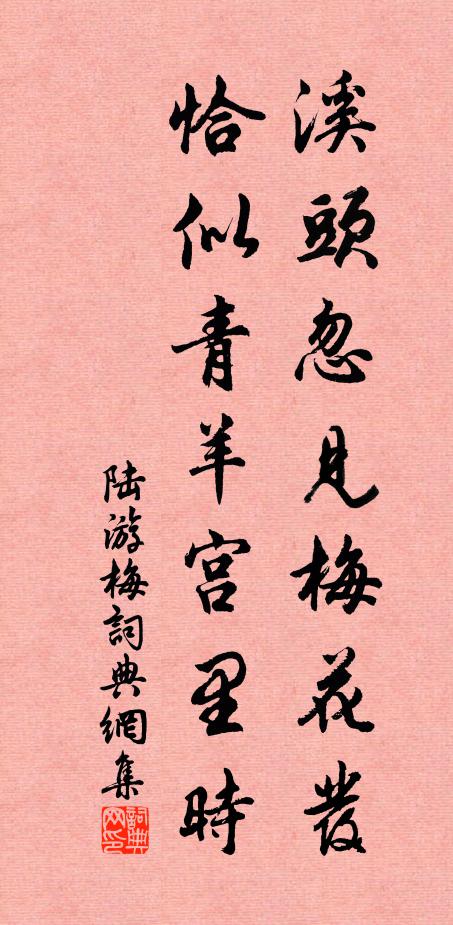 溪頭忽見梅花發
恰似青羊宫里時
陆游梅詞典網集
詞典网印